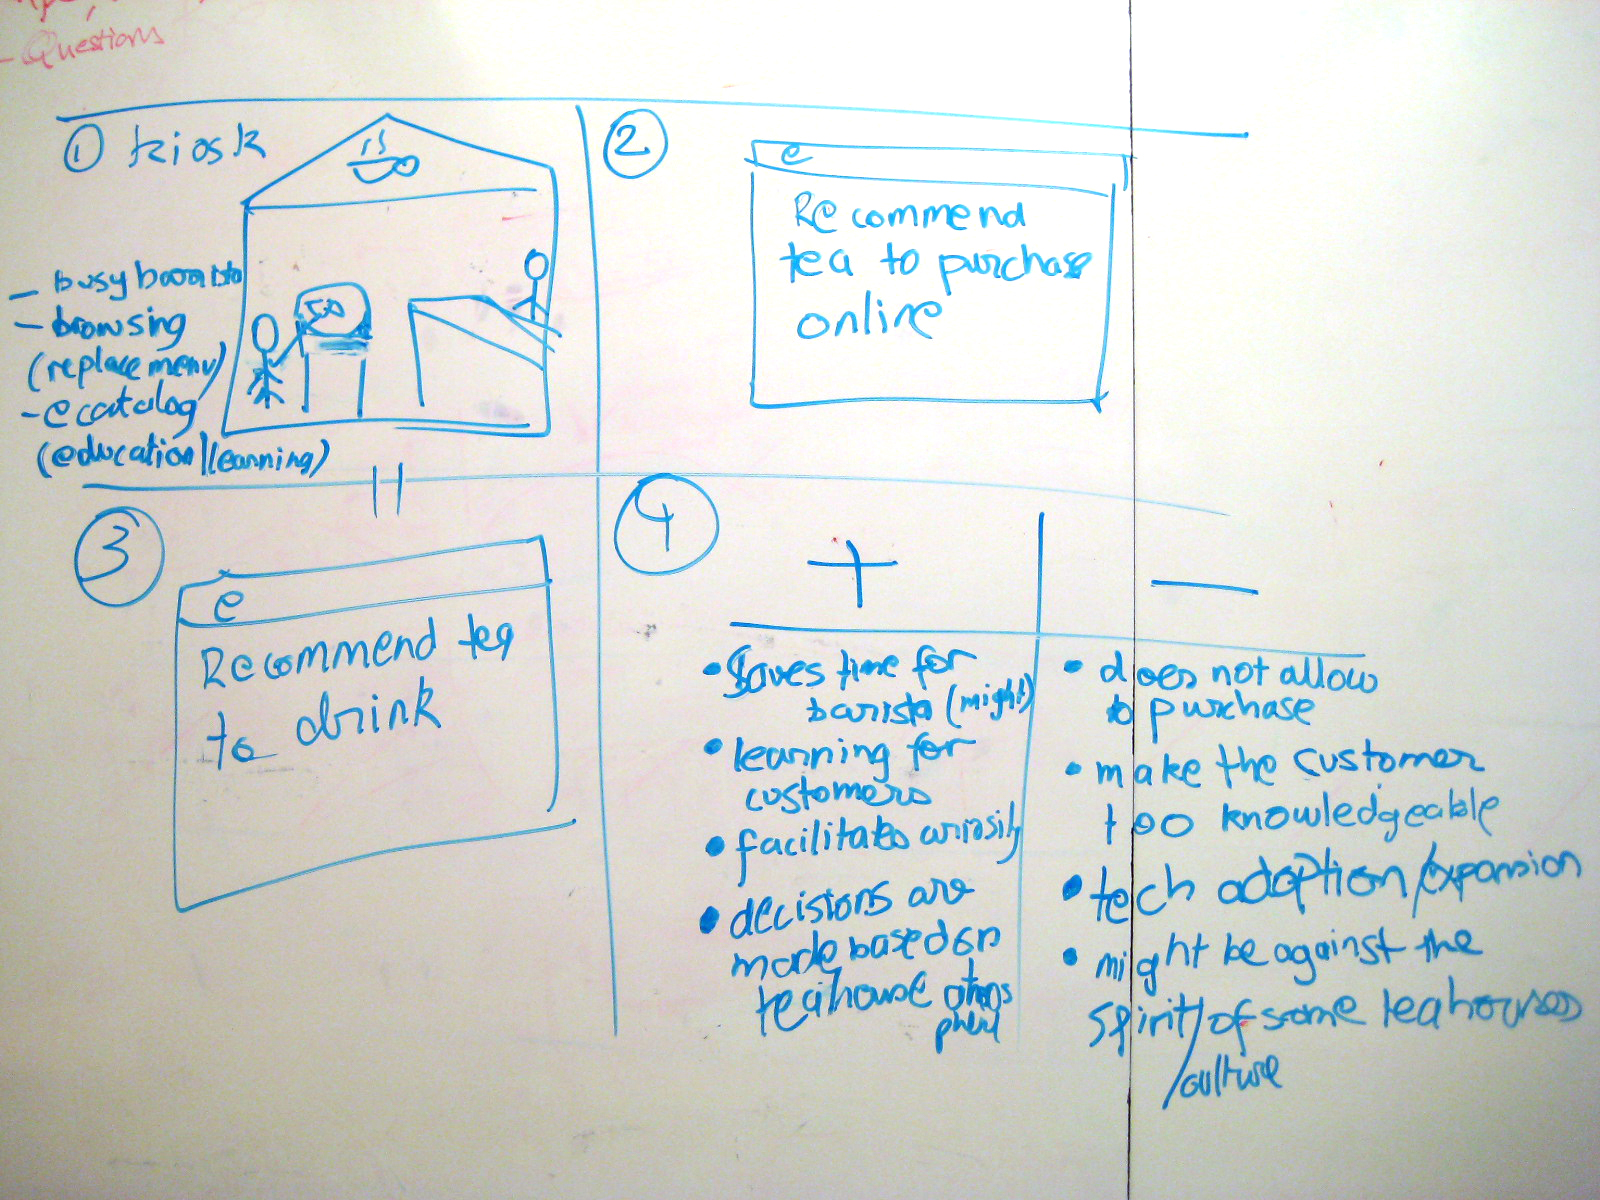 - Questions
① kiosk
- busy barista
- browsing
(replace menu)
- ecatalog
(education/learning)
②
e
Recommend
tea to purchase
online
③
e
Recommend tea
to drink
④
+
• Saves time for
barista (might)
• learning for
customers
• facilitates curiosity
• decisions are
made based on
teahouse
—
• does not allow
to purchase
• make the customer
too knowledgeable
• tech adoption/expansion
• might be against the
spirit/of some teahouses
/culture